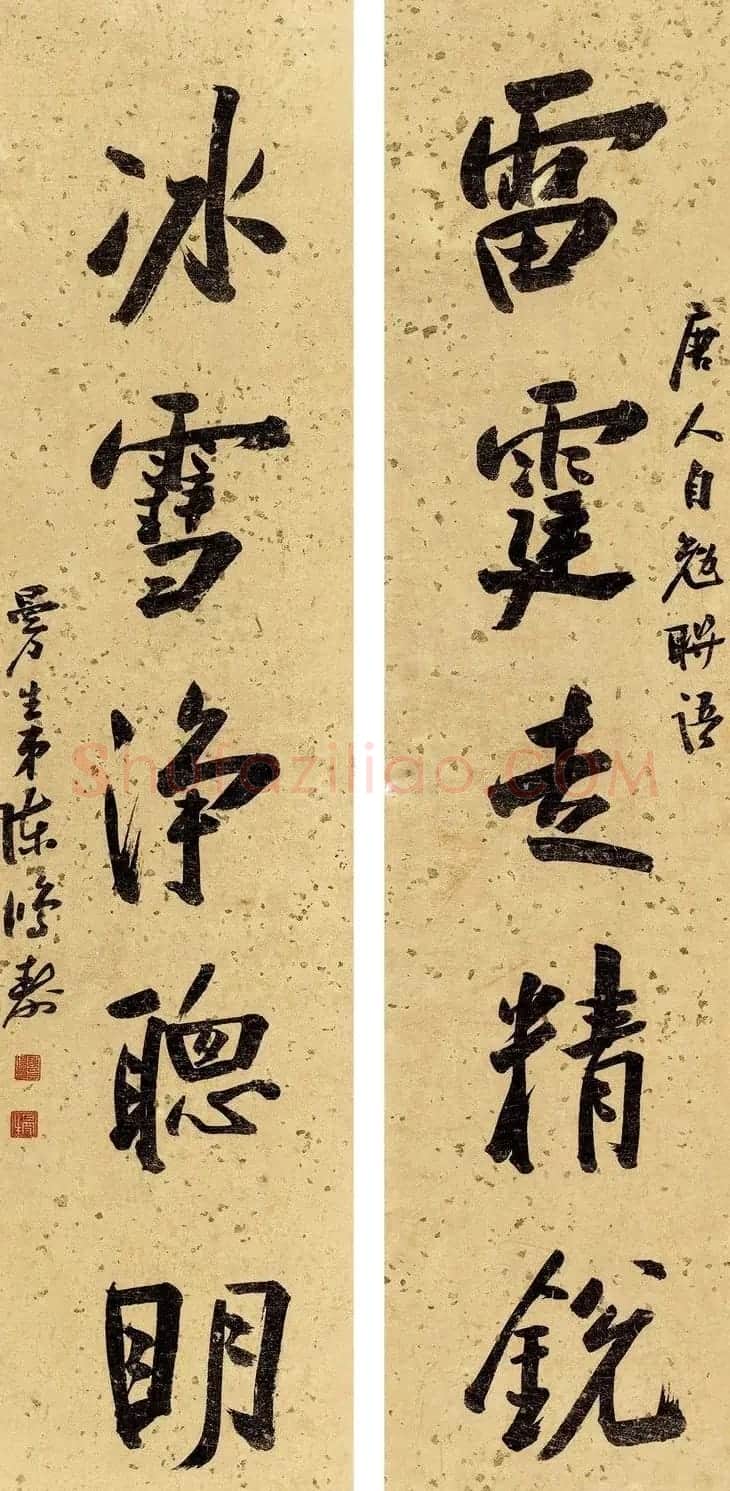 雷霆走精銳
唐人自勉聯語
冰雪淨聰明
曼生弟陳鴻壽
Shufaziliao.COM